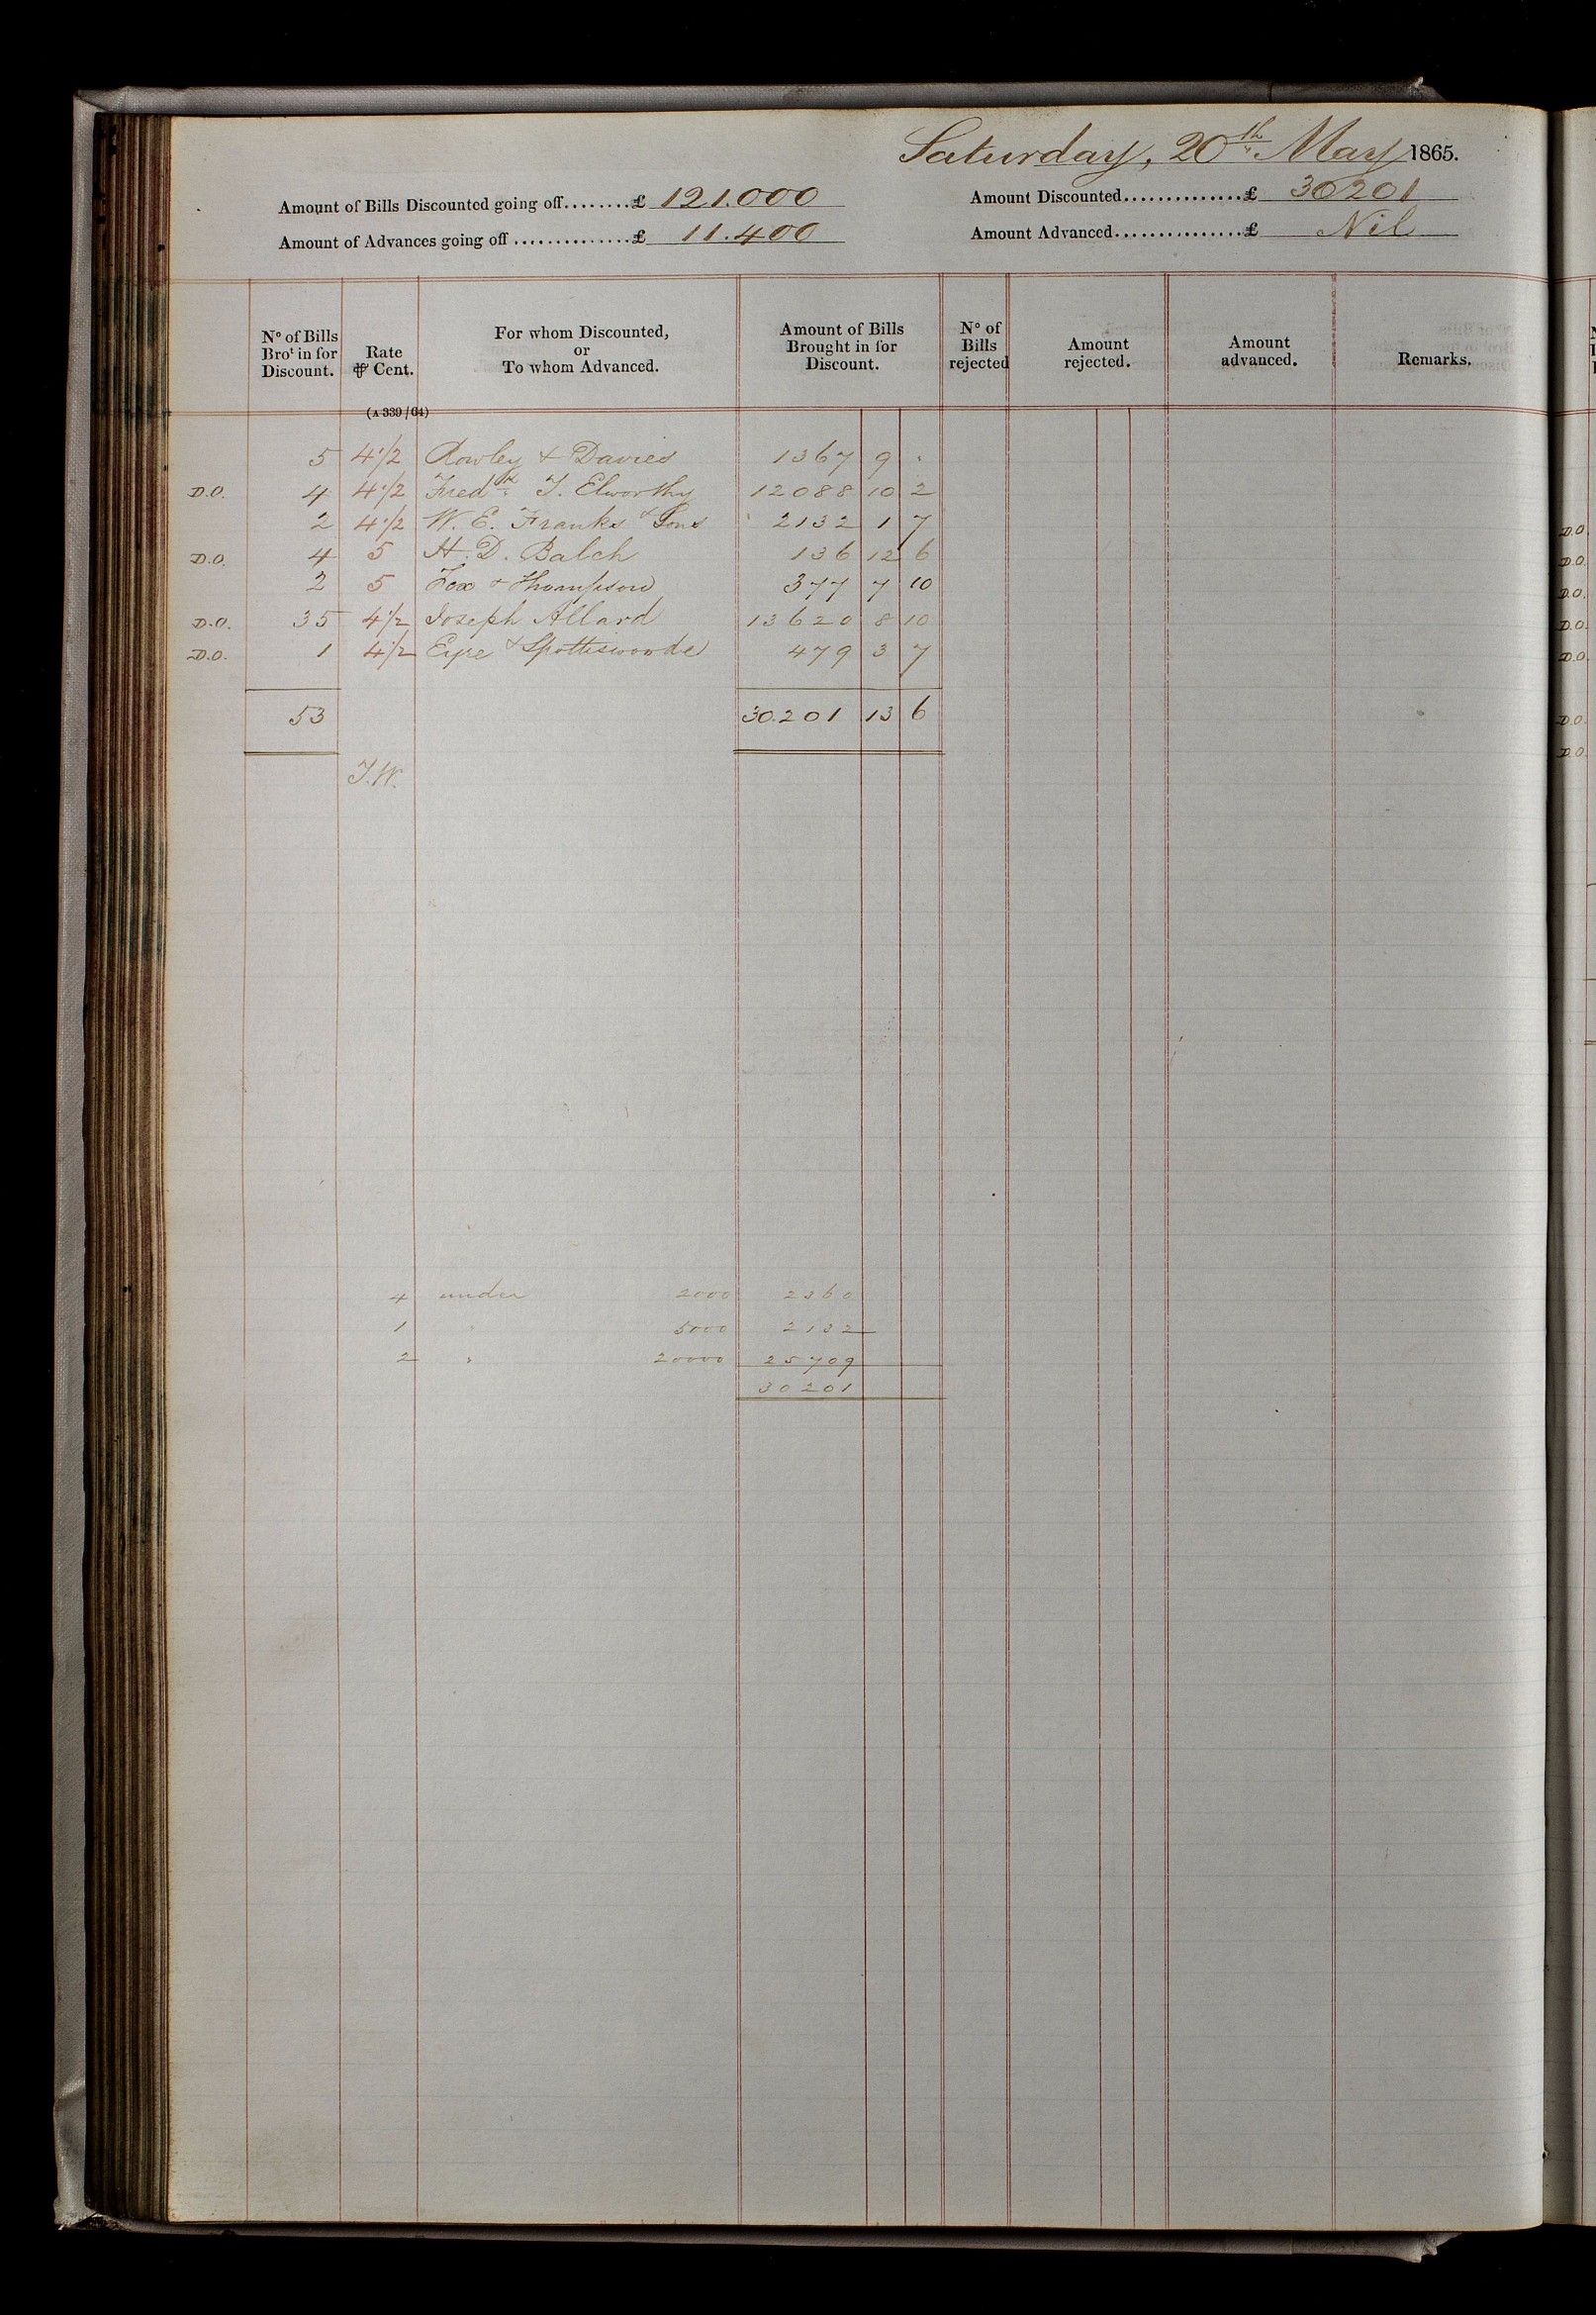 Saturday, 20th May 1865.
Amount of Bills Discounted going off........£ 121.000
Amount Discounted..............£ 30201
Amount of Advances going off..............£ 11.400
Amount Advanced................£ Nil
No of Bills Brot in for Discount. | Rate ⅌ Cent. | For whom Discounted, or To whom Advanced. | Amount of Bills Brought in for Discount. | No of Bills rejected | Amount rejected. | Amount advanced. | Remarks.
(A 339/64)
5 4 1/2 Rowley & Davies 1367 9 .
D.O. 4 4 1/2 Fredk. T. Elworthy 12088 10 2
2 4 1/2 W. E. Franks & Sons 2132 1 7
D.O. 4 5 H. D. Balch 136 12 6
2 5 Fox & Thompson 377 7 10
D.O. 35 4 1/2 Joseph Allard 13620 8 10
D.O. 1 4 1/2 Eyre & Spottiswoode 479 3 7
53 30.201 13 6
J.W.
4 under 2000 2360
1 " 5000 2132
2 " 20000 25709
30201
D.O.
D.O.
D.O.
D.O.
D.O.
D.O.
D.O.